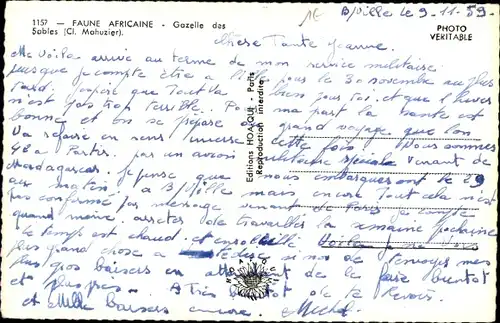 1157 - FAUNE AFRICAINE - Gazelle des
Sables (Cl. Mahuzier).
PHOTO
VÉRITABLE
B/Ville le 9-11-59
Chère Tante Jeanne.
Me voilà arrivé au terme de mon service militaire
puisque je compte être à pour le 30 novembre au plus
tard. J'espère que tout va bien pour toi, et que l'hiver
n'est pas trop terrible. Pour ma part la santé est
bonne et on se prépare au grand voyage que l'on
va refaire en sens inverse cette fois. Nous sommes
48 à partir, par un avion militaire spécial venant de
Madagascar. Je pense que nous embarquerons le 29
au matin, à B/Ville mais encore tout cela n'est
pas confirmé par message venant de Paris. Je compte
quand même arrêter de travailler la semaine prochaine
le temps est chaud et ensoleillé. Voilà je ne vois
plus grand chose à te dire, si non de t'envoyer mes
plus gros baisers en attendant de le faire bientôt
et plus près. A très bientôt de te revoir.
et Mille baisers encore. Michel
Editions HOA-QUI - Paris
Reproduction interdite
HOA-QUI